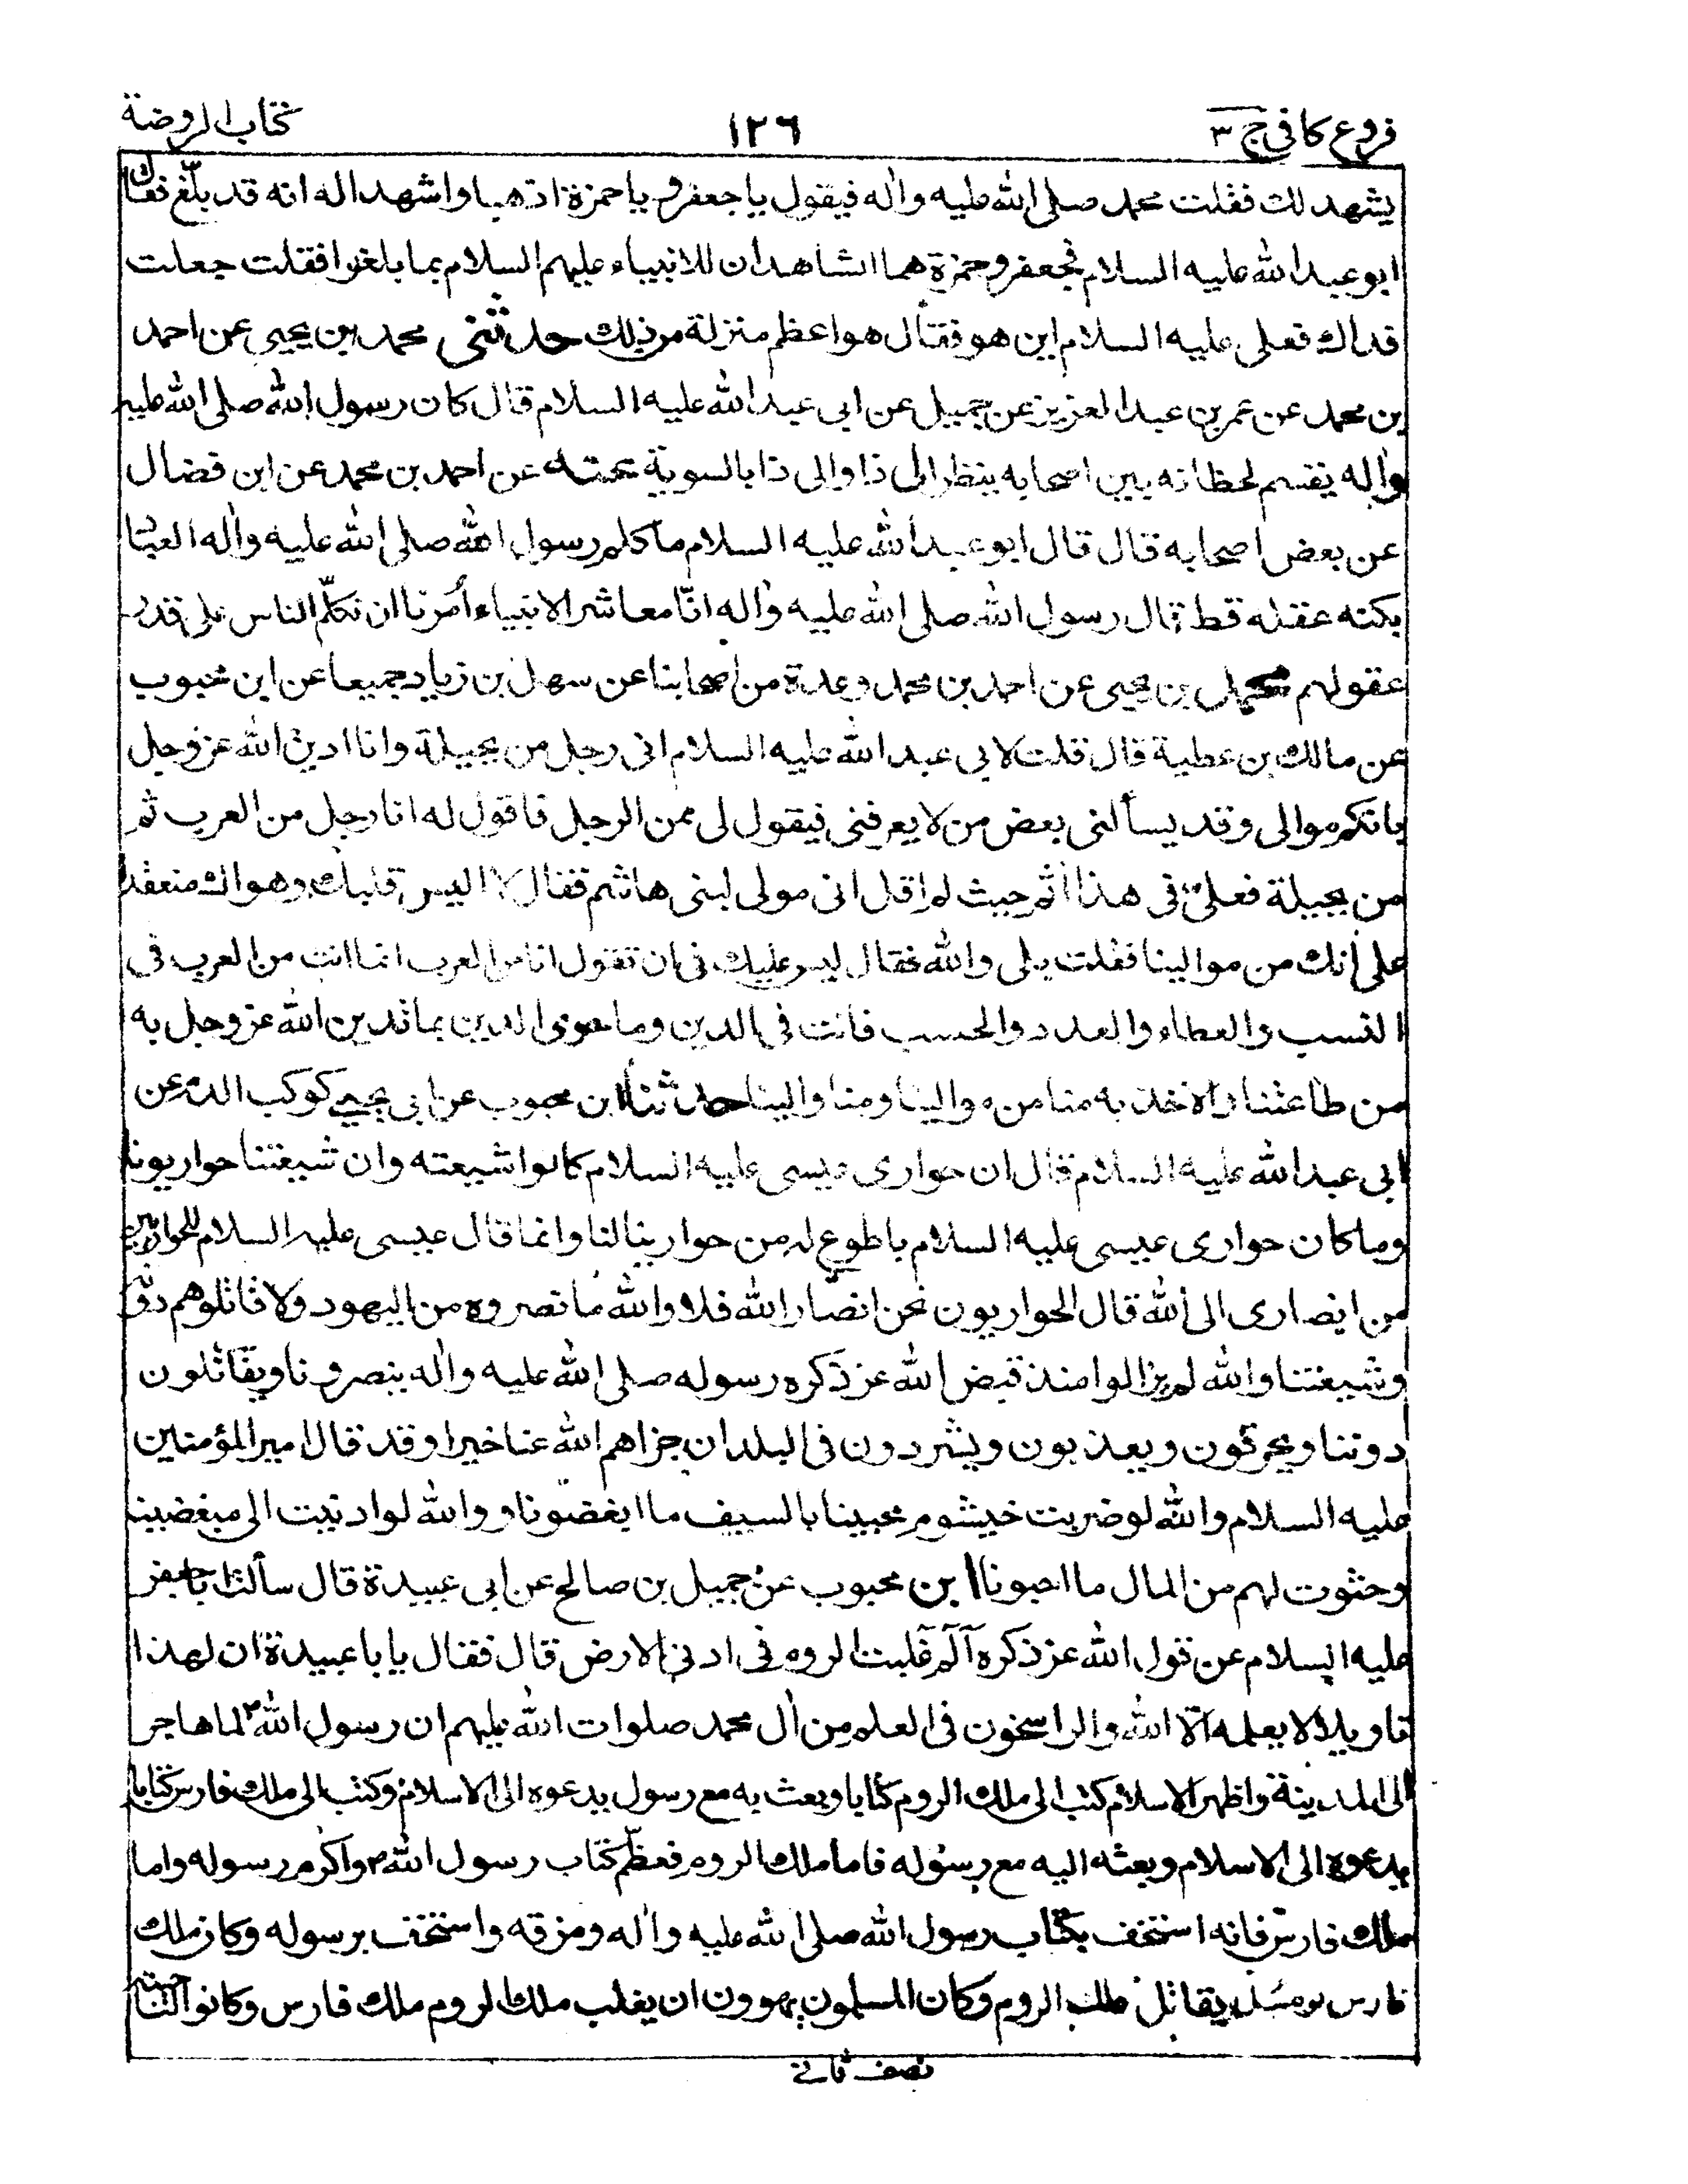 فروع كافی ج ٣
١٢٦
كتاب الروضة
يشهد لك فقلت محمد صلى الله عليه واله فيقول يا جعفر و يا حمزة اذهبا واشهدا له انه قد بلّغ فقال
ابو عبد الله عليه السلام فجعفر وحمزة هما الشاهدان للانبياء عليهم السلام بما بلغوا فقلت جعلت
فداك فعلى عليه السلام اين هو فقال هو اعظم منزلة من ذلك حدثنى محمد بن يحيى عن احمد
بن محمد عن عمر بن عبد العزيز عن جميل عن ابى عبد الله عليه السلام قال كان رسول الله صلى الله عليه
واله يقسم لحظاته بين اصحابه ينظر الى ذا والى ذا بالسوية عنه عن احمد بن محمد عن ابن فضال
عن بعض اصحابه قال قال ابو عبد الله عليه السلام ما كلم رسول الله صلى الله عليه واله العباد
بكنه عقله قط قال رسول الله صلى الله عليه واله انّا معاشر الانبياء أمرنا ان نكلّم الناس على قدر
عقولهم محمد بن يحيى عن احمد بن محمد وعدة من اصحابنا عن سهل بن زياد جميعا عن ابن محبوب
عن مالك بن عطية قال قلت لابى عبد الله عليه السلام انى رجل من بجيلة وانا ادين الله عز وجل
بانكم موالى وقد يسألنى بعض من لا يعرفنى فيقول لى ممن الرجل فاقول له انا رجل من العرب ثم
من بجيلة فعلىّ فى هذا اثم حيث لم اقل انى مولى لبنى هاشم فقال لا اليس قلبك وهواك منعقدا
على أنك من موالينا فقلت بلى والله فقال ليس عليك فى ان تقول انا من العرب انما انت من العرب فى
النسب والعطاء والعدد والحسب فانت فى الدين وما حوى الدين بما تدين الله عز وجل به
من طاعتنا والاخذ به منا من موالينا ومنا والينا حدثنا ابن محبوب عن ابى يحيى كوكب الدم عن
ابى عبد الله عليه السلام قال ان حوارى عيسى عليه السلام كانوا شيعته وان شيعتنا حواريونا
وما كان حوارى عيسى عليه السلام باطوع له من حوارينا لنا وانما قال عيسى عليه السلام للحواريين
من انصارى الى الله قال الحواريون نحن انصار الله فلا والله ما نصروه من اليهود ولا قاتلوهم دونه
وشيعتنا والله لم يزالوا منذ قبض الله عز ذكره رسوله صلى الله عليه واله ينصرونا ويقاتلون
دوننا ويحرقون ويعذبون ويشردون فى البلدان جزاهم الله عنا خيرا وقد قال امير المؤمنين
عليه السلام والله لو ضربت خيشوم محبينا بالسيف ما ابغضونا و والله لو ادنيت الى مبغضينا
وحثوت لهم من المال ما احبونا ابن محبوب عن جميل بن صالح عن ابى عبيدة قال سألت ابا جعفر
عليه السلام عن قول الله عز ذكره آلم غلبت الروم فى ادنى الارض قال فقال يا با عبيدة ان لهذا
تاويلا لا يعلمه الا الله والراسخون فى العلم من آل محمد صلوات الله عليهم ان رسول الله ص لما هاجر
الى المدينة واظهر الاسلام كتب الى ملك الروم كتابا وبعث به مع رسول يدعوه الى الاسلام وكتب الى ملك فارس كتابا
يدعوه الى الاسلام وبعثه اليه مع رسوله فاما ملك الروم فعظّم كتاب رسول الله ص واكرم رسوله واما
ملك فارس فانه استخف بكتاب رسول الله صلى الله عليه واله ومزقه واستخف برسوله وكان ملك
فارس يومئذ يقاتل ملك الروم وكان المسلمون يهوون ان يغلب ملك الروم ملك فارس وكانوا لناحيته
نصف ثانى